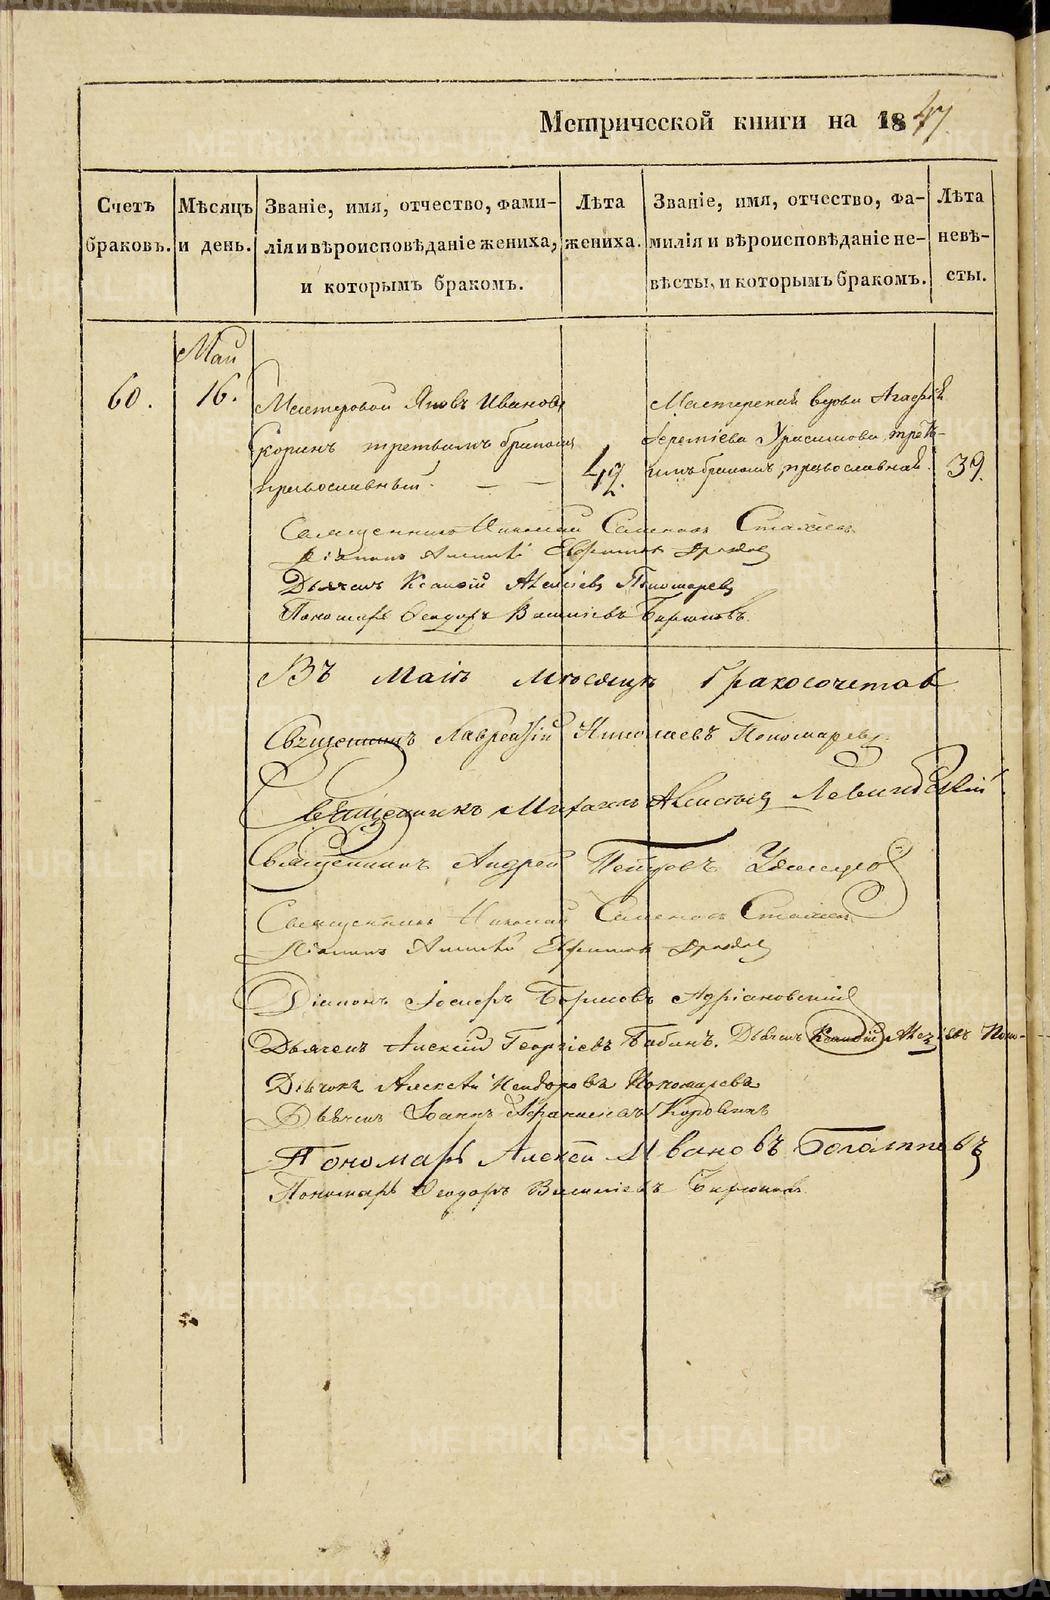 Метрической книги на 1847
Счетъ браковъ.
Мѣсяцъ и день.
Званіе, имя, отчество, фами-
лія и вѣроисповѣданіе жениха,
и которымъ бракомъ.
Лѣта жениха.
Званіе, имя, отчество, фа-
милія и вѣроисповѣданіе не-
вѣсты, и которымъ бракомъ.
Лѣта невѣ-
сты.
Май
60.
16.
Мастеровой Яковъ Ивановъ
третьимъ бракомъ
православный.
49.
Мастерская вдова Агафія
Іереміева Урасимова, треть-
имъ бракомъ, православная.
39.
Священникъ Николай Семеновъ
Діаконъ
Дьячекъ Ксанфій Алексіевъ Пономаревъ
Пономарь Феодоръ Василіевъ Бирюковъ.
Въ Маіѣ мѣсяцѣ бракосочетав
Священникъ Лаврентій Николаевъ Пономаревъ
Священникъ Михаилъ Алексіевъ Левицкій
Священникъ Андрей Петровъ
Священникъ Николай Семеновъ
Діаконъ
Діаконъ Іосифъ Борисовъ Адріановскій
Дьячекъ Алексій Георгіевъ Бабинъ. Дьячекъ Ксанфій Алексіевъ Поно-
Дьячокъ Алексѣй Феодоровъ Пономаревъ
Дьячекъ Іоаннъ Афанасіевъ Коровинъ
Пономарь Алексѣй Ивановъ
Пономарь Феодоръ Василіевъ Бирюковъ
METRIKI.GASO-URAL.RU